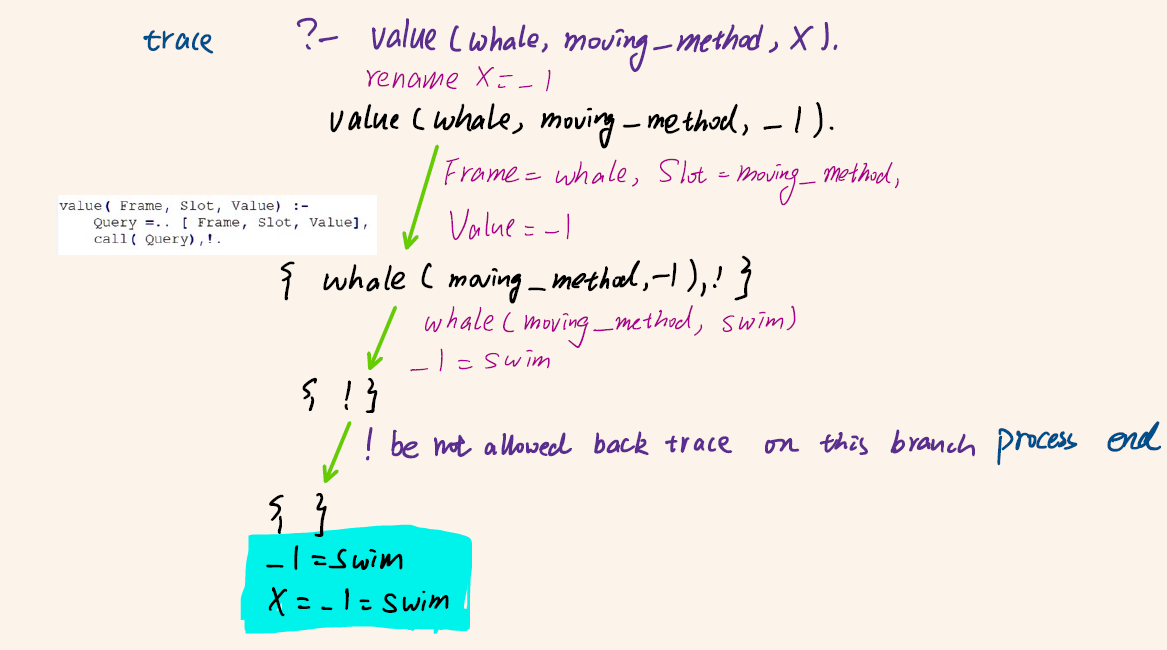 trace ?- value (whale, moving_method, X).
rename X=_1
value (whale, moving_method, _1).
Frame = whale, Slot = moving_method,
Value = _1
value( Frame, Slot, Value) :-
Query =.. [ Frame, Slot, Value],
call( Query),!.
{ whale ( moving_method,_1),! }
whale (moving_method, swim)
_1 = swim
{ ! }
! be not allowed back trace on this branch process end
{ }
_1 = swim
X = _1 = swim